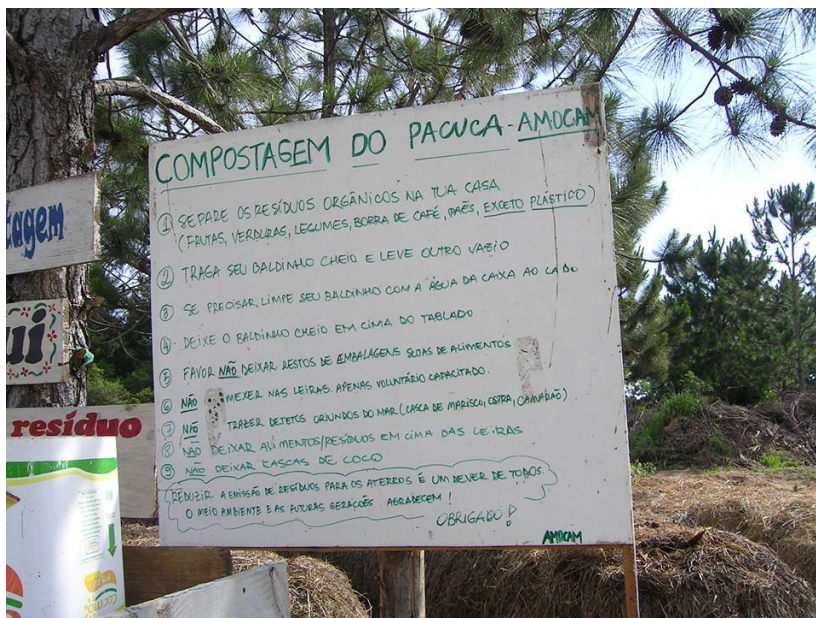 COMPOSTAGEM DO PACUCA - AMOCAM
① SEPARE OS RESÍDUOS ORGÂNICOS NA TUA CASA
(FRUTAS, VERDURAS, LEGUMES, BORRA DE CAFÉ, PAÊS, EXCETO PLÁSTICO)
② TRAGA SEU BALDINHO CHEIO E LEVE OUTRO VAZIO
③ SE PRECISAR, LIMPE SEU BALDINHO COM A ÁGUA DA CAIXA AO LADO
④ DEIXE O BALDINHO CHEIO EM CIMA DO TABLADO
⑤ FAVOR NÃO DEIXAR RESTOS DE EMBALAGENS SUJAS DE ALIMENTOS
⑥ NÃO MEXER NAS LEIRAS. APENAS VOLUNTÁRIO CAPACITADO.
⑦ NÃO TRAZER DEJETOS ORIUNDOS DO MAR (CASCA DE MARISCO, OSTRA, CAMARÃO)
⑧ NÃO DEIXAR ALIMENTOS/RESÍDUOS EM CIMA DAS LEIRAS
⑨ NÃO DEIXAR CASCAS DE COCO
REDUZIR A EMISSÃO DE RESÍDUOS PARA OS ATERROS É UM DEVER DE TODOS.
O MEIO AMBIENTE E AS FUTURAS GERAÇÕES AGRADECEM!
OBRIGADO!
AMOCAM
tagem
ui
resíduo